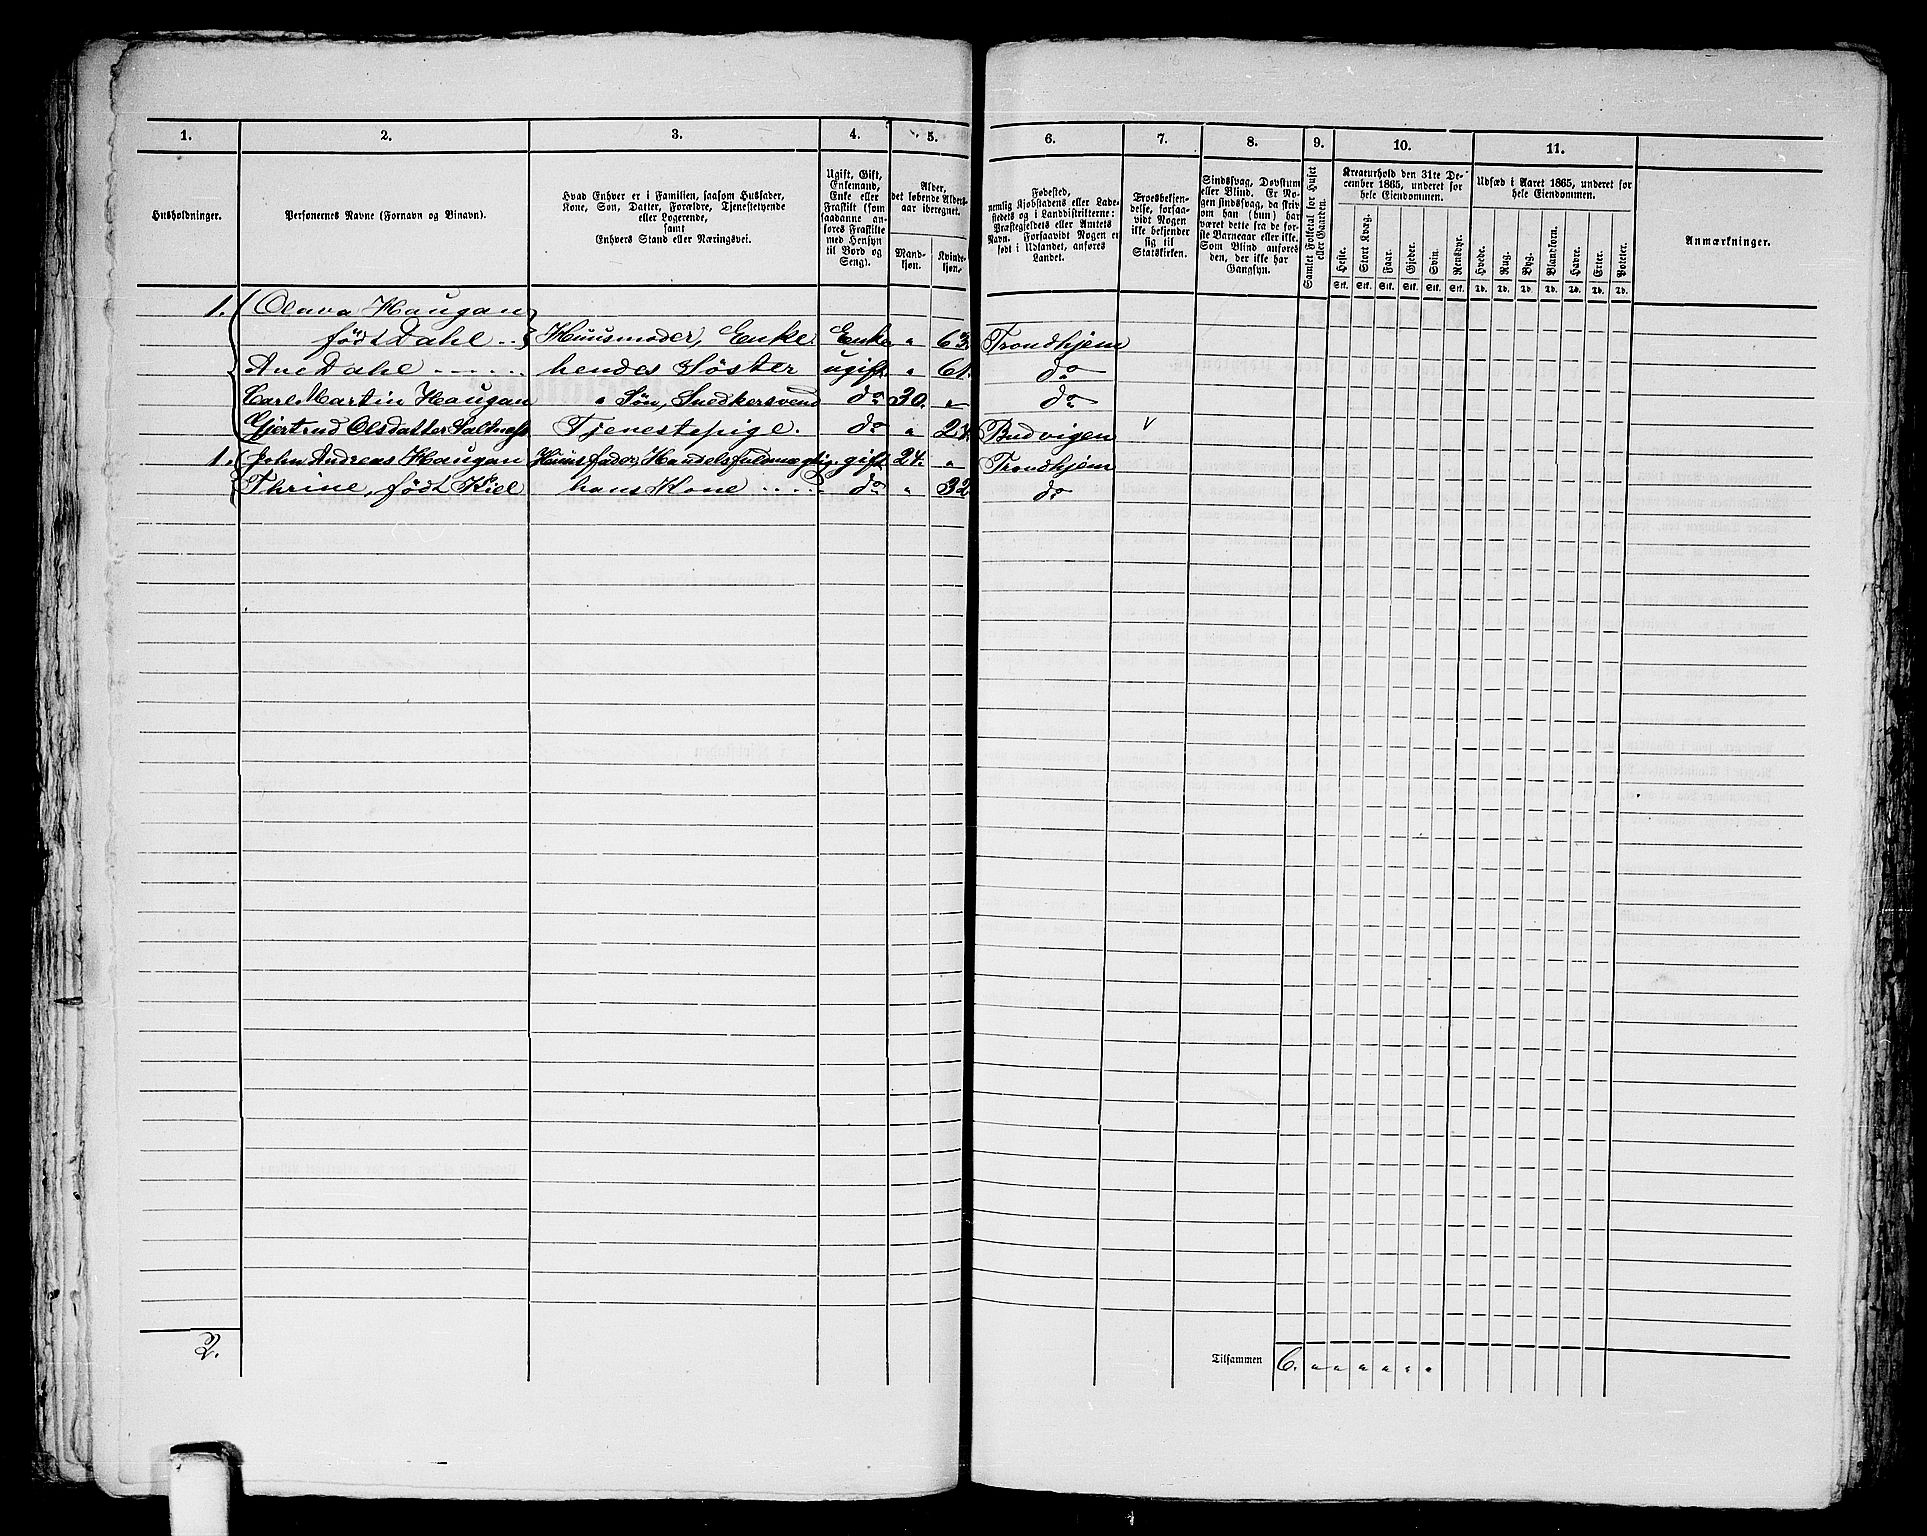 1. 2. 3. 4. 5. 6. 7. 8. 9. 10. 11.
Husholdninger.
Personernes Navne (Fornavn og Binavn).
Hvad Enhver er i Familien, saasom Husfader,
Kone, Søn, Datter, Forældre, Tjenestetyende
eller Logerende,
samt
Enhvers Stand eller Næringsvei.
Ugift, Gift,
Enkemand,
Enke eller
Fraskilt (som
saadanne an-
føres Fraskilte
med Hensyn
til Bord og
Seng).
Alder,
det løbende Alders-
aar iberegnet.
Mand-
kjøn.
Kvinde-
kjøn.
Fødested,
nemlig Kjøbstadens eller Lade-
stedets og i Landdistrikterne:
Præstegjeldets eller Amtets
Navn. Forsaavidt Nogen er
født i Udlandet, anføres
Landet.
Troesbekjen-
delse, forsaa-
vidt Nogen
ikke bekjender
sig til
Statskirken.
Sindssvag, Døvstum
eller Blind. Er No-
gen sindssvag, da skriv
om han (hun) har
været dette fra de før-
ste Barneaar eller ikke.
Som Blind anføres
den, der ikke har
Gangsyn.
Samlet Folketal for Huset
eller Gaarden.
Kreaturhold den 31te De-
cember 1865, underet for
hele Eiendommen.
Heste. Stort Kvæg. Faar. Gjeder. Svin. Rensdyr.
Stk. Stk. Stk. Stk. Stk. Stk.
Udsæd i Aaret 1865, underet for
hele Eiendommen.
Hvede. Rug. Byg. Blandkorn. Havre. Erter. Poteter.
Td. Td. Td. Td. Td. Td. Td.
Anmærkninger.
1. Olava Haugan
født Dahl .. Huusmoder, Enke Enke " 63. Trondhjem
Ane Dahl hendes Søster ugift " 61. do
Carl Martin Haugan " Søn, Snedkersvend do 30. " do
Gjertrud Olsdatter Saltnæss Tjenestepige. do " 24. Budvigen v
1. John Andreas Haugan Huusfader, Handelsfuldmægtig. gift 24. " Trondhjem
Thrine, født Kiel hans Kone do " 32 do
2. Tilsammen 6. " " " " " "